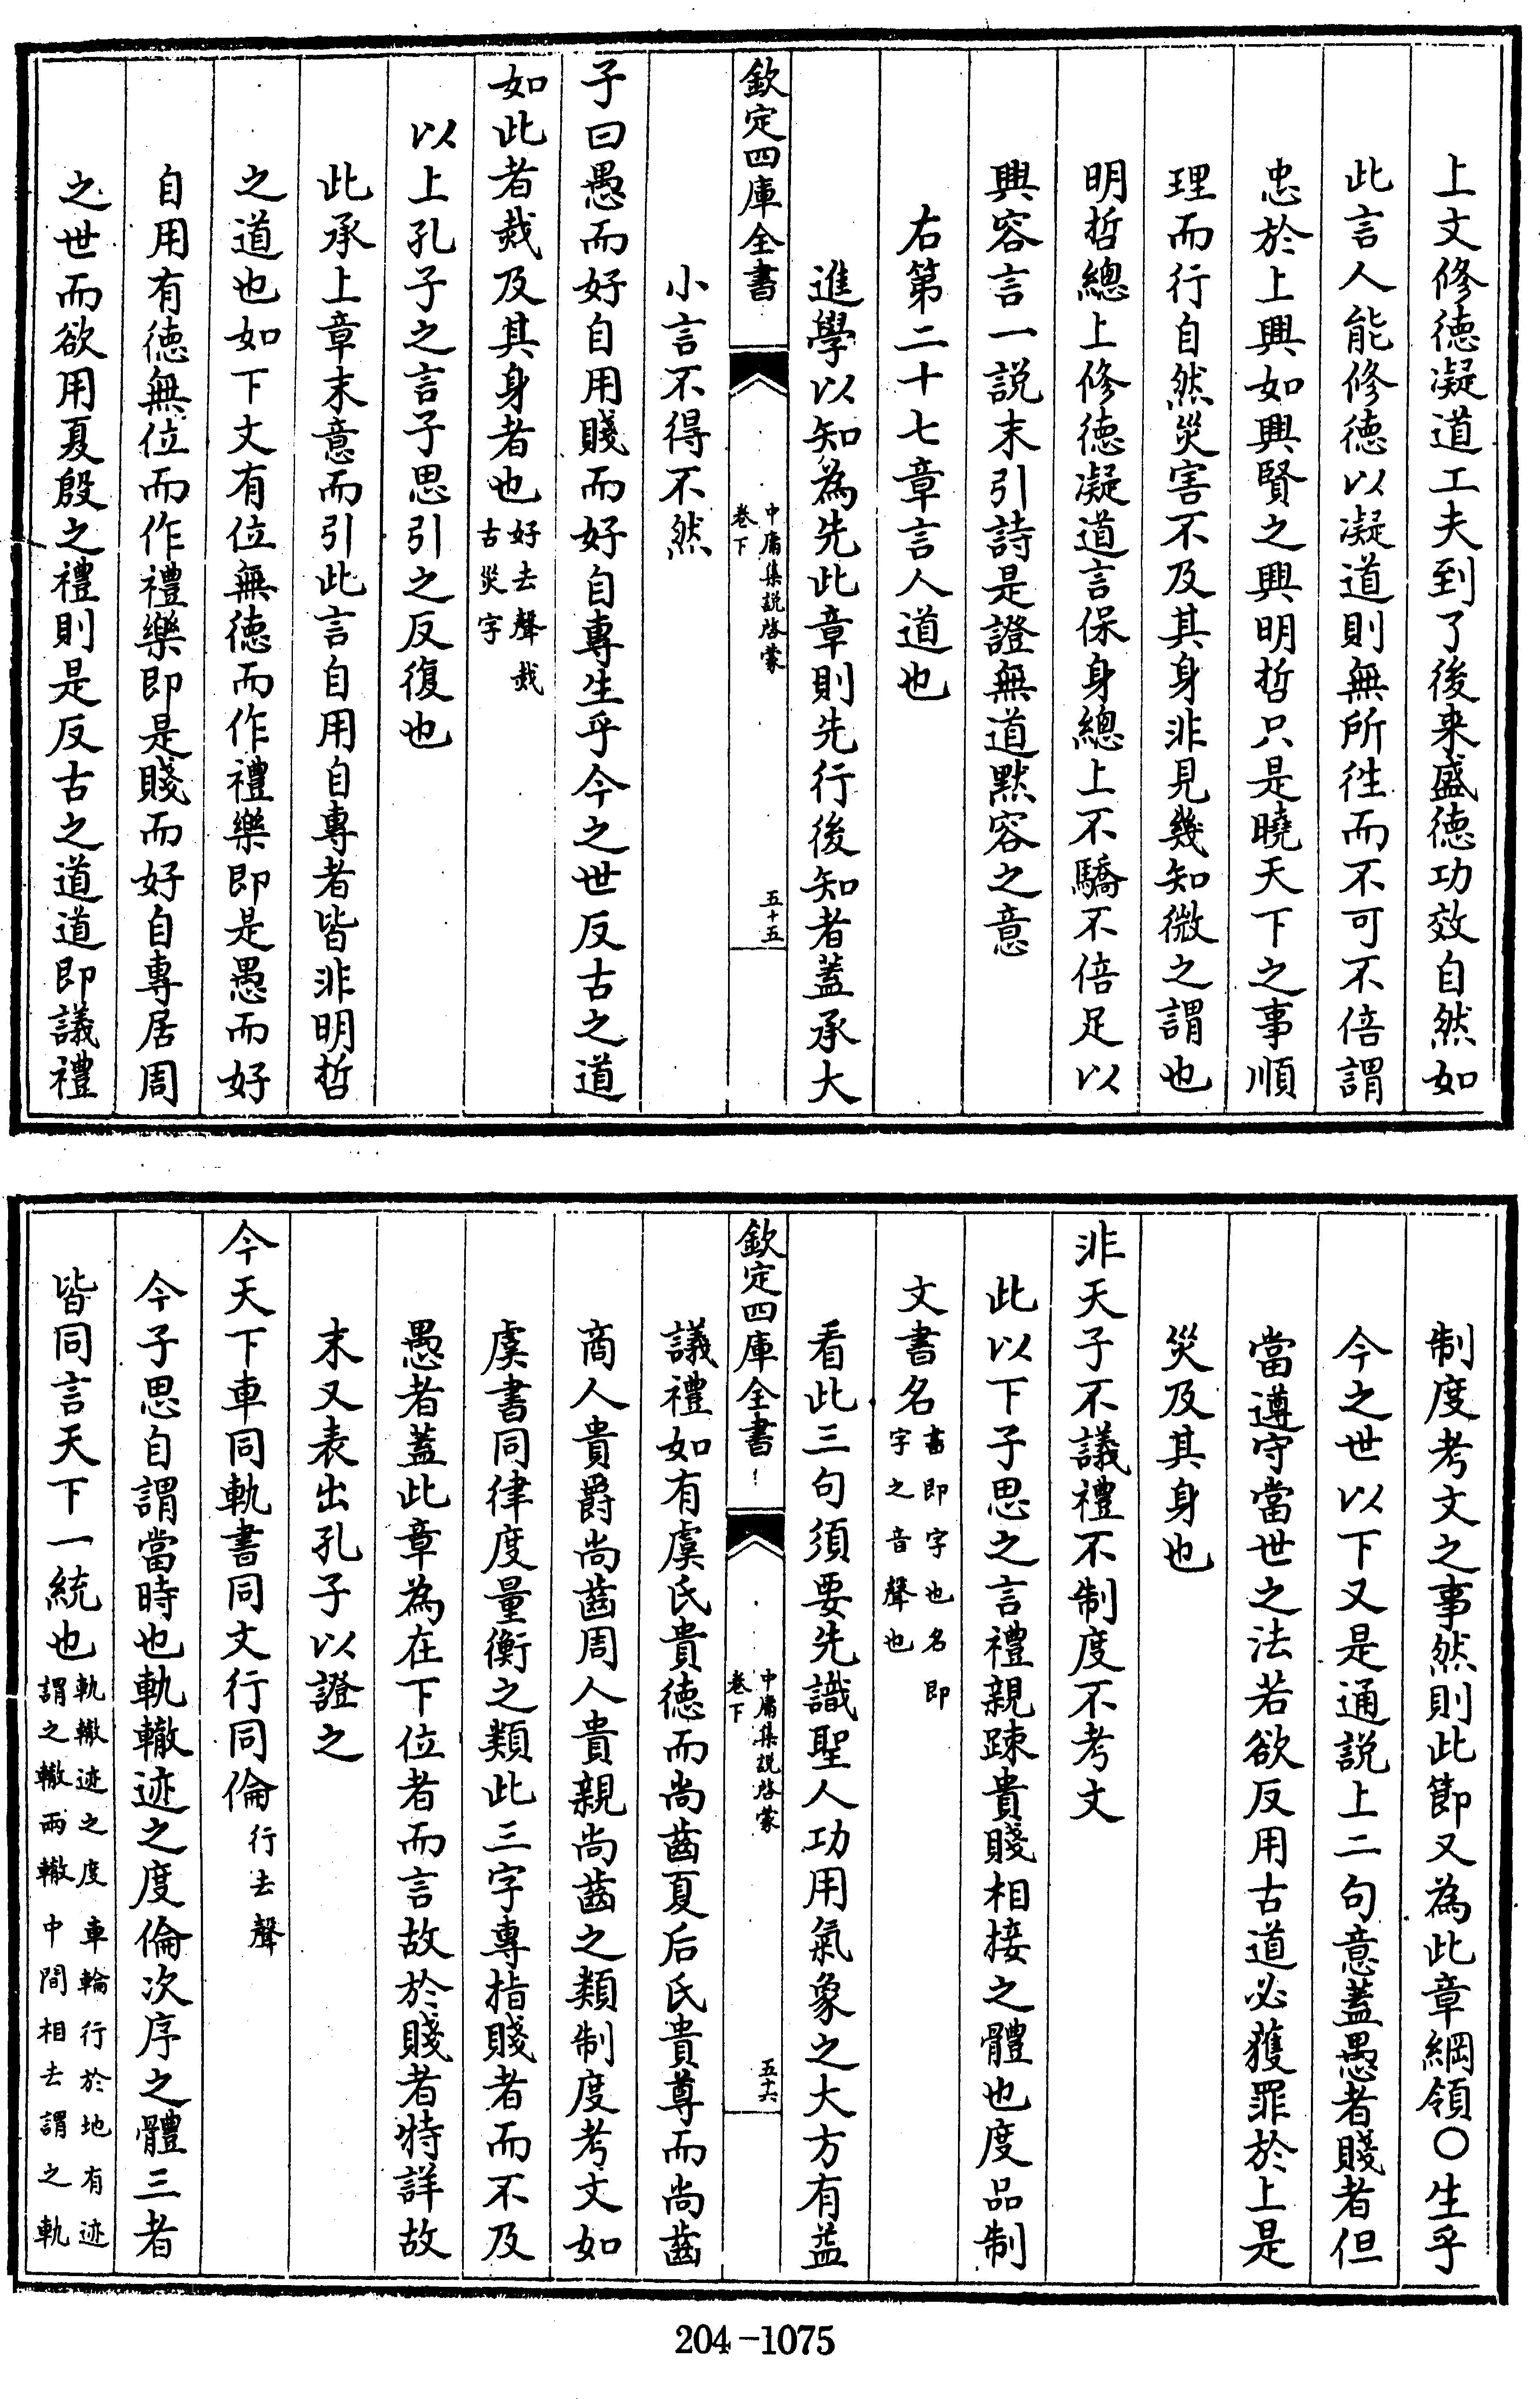 上文修徳凝道工夫到了後来盛徳功效自然如
此言人能修徳以凝道則無所徃而不可不倍謂
忠於上興如興賢之興明哲只是曉天下之事順
理而行自然災害不及其身非見幾知微之謂也
明哲總上修徳凝道言保身總上不驕不倍足以
興容言一説末引詩是證無道黙容之意
右第二十七章言人道也
進學以知為先此章則先行後知者蓋承大
欽定四庫全書
中庸集説啓蒙
卷下
五十五
小言不得不然
子曰愚而好自用賤而好自專生乎今之世反古之道
如此者烖及其身者也好去聲烖
古災字
以上孔子之言子思引之反復也
此承上章末意而引此言自用自專者皆非明哲
之道也如下文有位無徳而作禮樂即是愚而好
自用有徳無位而作禮樂即是賤而好自專居周
之世而欲用夏殷之禮則是反古之道道即議禮
制度考文之事然則此節又為此章綱領○生乎
今之世以下又是通説上二句意蓋愚者賤者但
當遵守當世之法若欲反用古道必獲罪於上是
災及其身也
非天子不議禮不制度不考文
此以下子思之言禮親踈貴賤相接之體也度品制
文書名書即字也名即
字之音聲也
看此三句須要先識聖人功用氣象之大方有益
欽定四庫全書
中庸集説啓蒙
卷下
五十六
議禮如有虞氏貴徳而尚齒夏后氏貴尊而尚齒
商人貴爵尚齒周人貴親尚齒之類制度考文如
虞書同律度量衡之類此三字專指賤者而不及
愚者蓋此章為在下位者而言故於賤者特詳故
末又表出孔子以證之
今天下車同軌書同文行同倫行去聲
今子思自謂當時也軌轍迹之度倫次序之體三者
皆同言天下一統也軌轍迹之度車輪行於地有迹
謂之轍兩轍中間相去謂之軌
204-1075